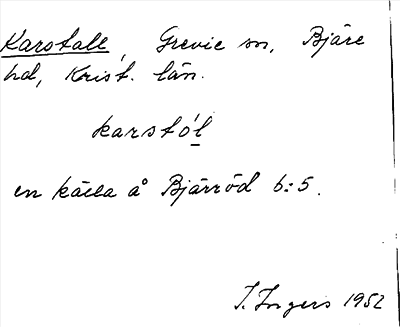 Karstall, Grevie sn, Bjäre
hd, Krist. län.
karstól
en källa å Bjärröd 6:5.
I. Ingers 1952